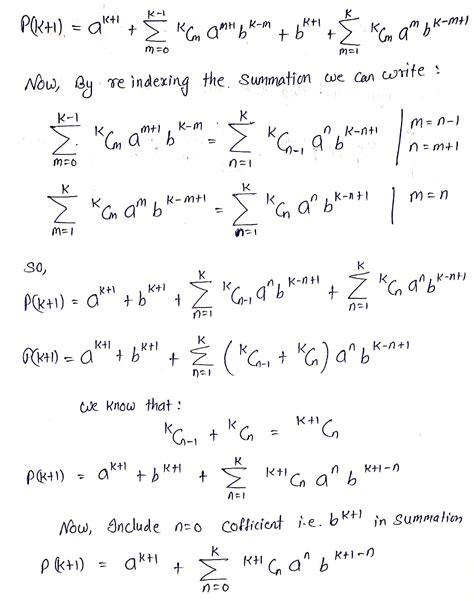 P(k+1) = a^{k+1} + \sum_{m=0}^{k-1} {}^{k}C_{m} a^{m+1} b^{k-m} + b^{k+1} + \sum_{m=1}^{k} {}^{k}C_{m} a^{m} b^{k-m+1}
Now, By reindexing the summation we can write :
\sum_{m=0}^{k-1} {}^{k}C_{m} a^{m+1} b^{k-m} = \sum_{n=1}^{k} {}^{k}C_{n-1} a^{n} b^{k-n+1} | m = n-1
n = m+1
\sum_{m=1}^{k} {}^{k}C_{m} a^{m} b^{k-m+1} = \sum_{n=1}^{k} {}^{k}C_{n} a^{n} b^{k-n+1} | m = n
So,
P(k+1) = a^{k+1} + b^{k+1} + \sum_{n=1}^{k} {}^{k}C_{n-1} a^{n} b^{k-n+1} + \sum_{n=1}^{k} {}^{k}C_{n} a^{n} b^{k-n+1}
P(k+1) = a^{k+1} + b^{k+1} + \sum_{n=1}^{k} ( {}^{k}C_{n-1} + {}^{k}C_{n} ) a^{n} b^{k-n+1}
we know that :
{}^{k}C_{n-1} + {}^{k}C_{n} = {}^{k+1}C_{n}
P(k+1) = a^{k+1} + b^{k+1} + \sum_{n=1}^{k} {}^{k+1}C_{n} a^{n} b^{k+1-n}
Now, Include n=0 cofficient i.e. b^{k+1} in summation
P(k+1) = a^{k+1} + \sum_{n=0}^{k} {}^{k+1}C_{n} a^{n} b^{k+1-n}